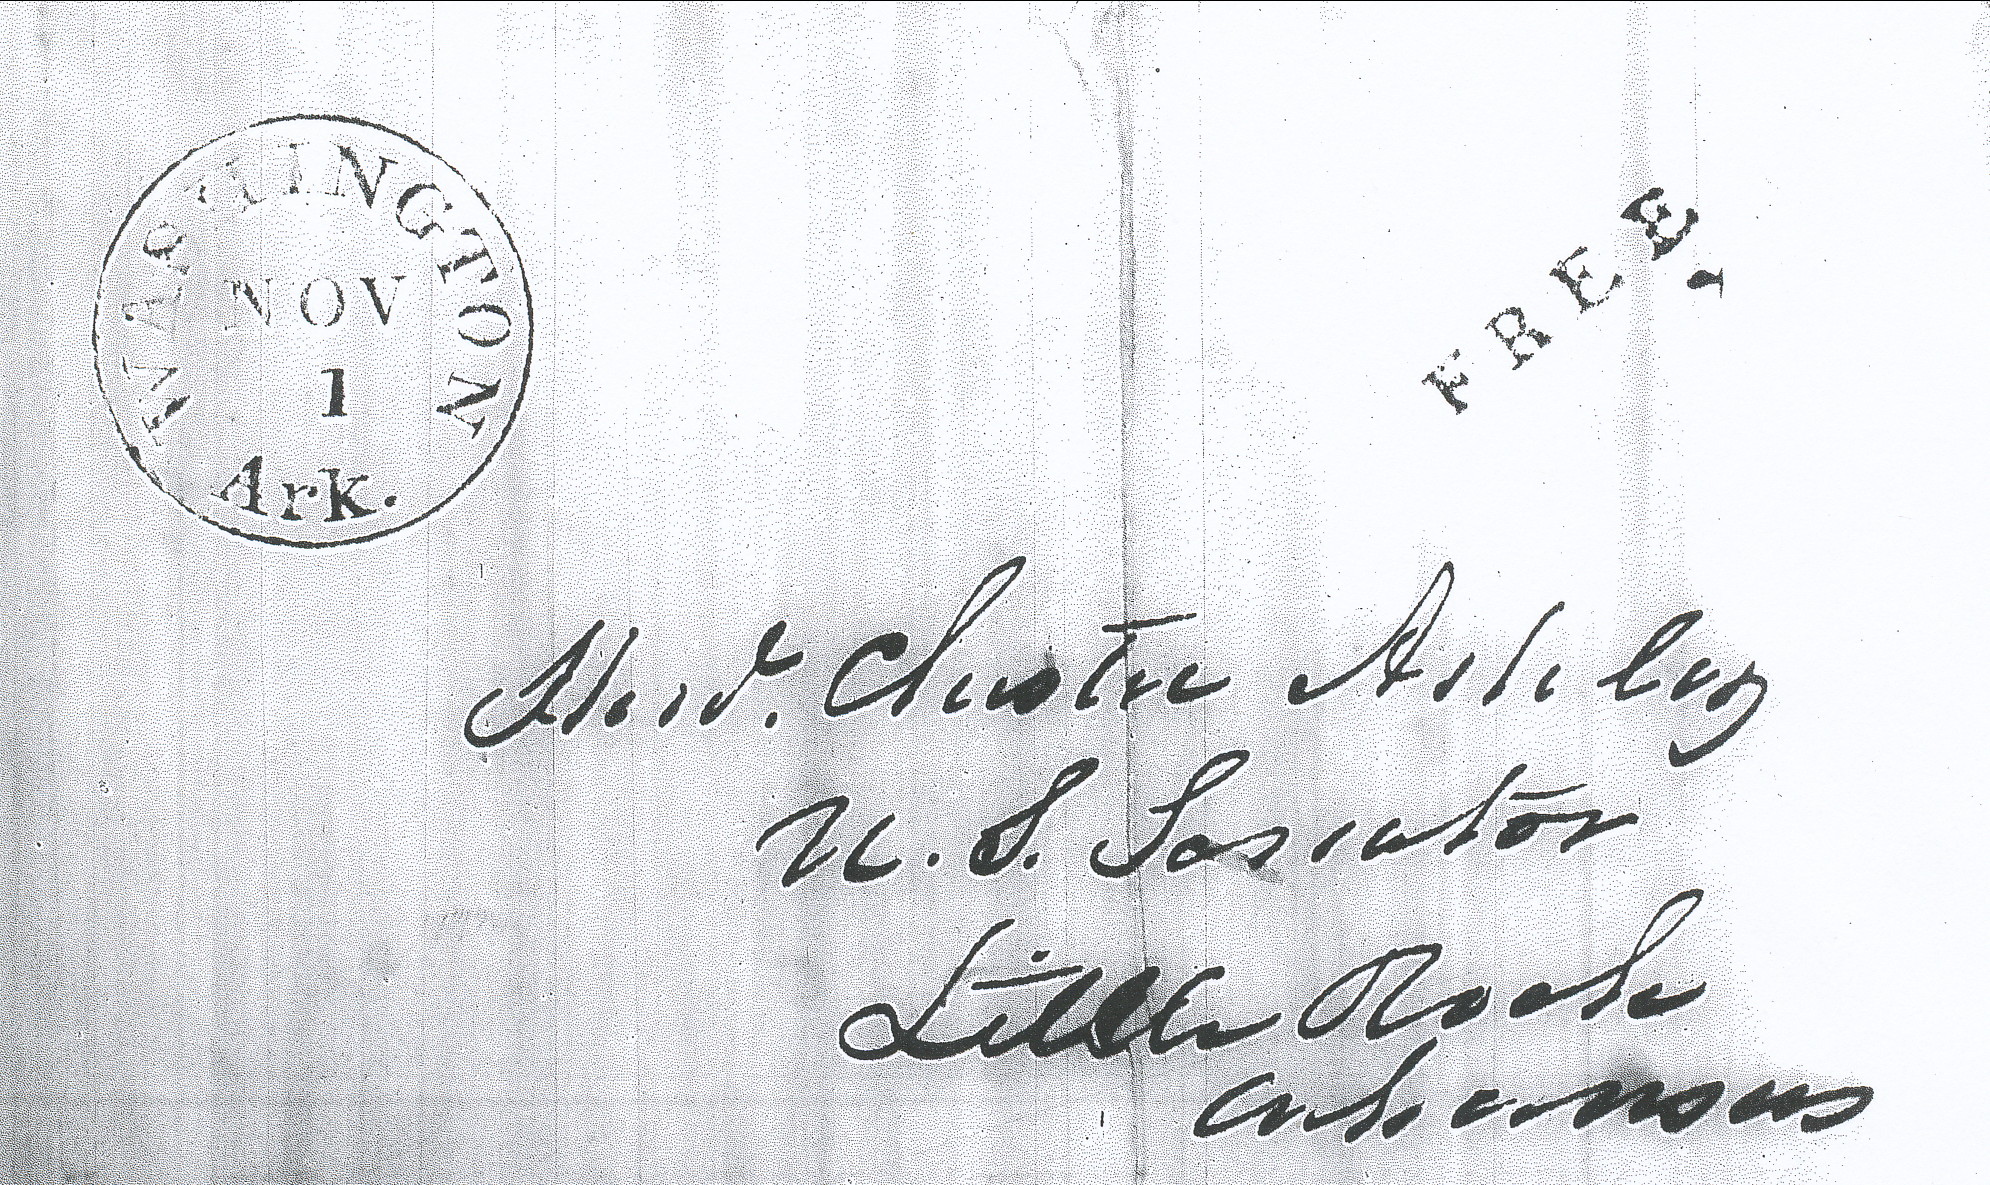 WASHINGTON
NOV
1
Ark.
FREE.
Hond. Chester Ashley
U. S. Senator
Little Rock
Arkansas